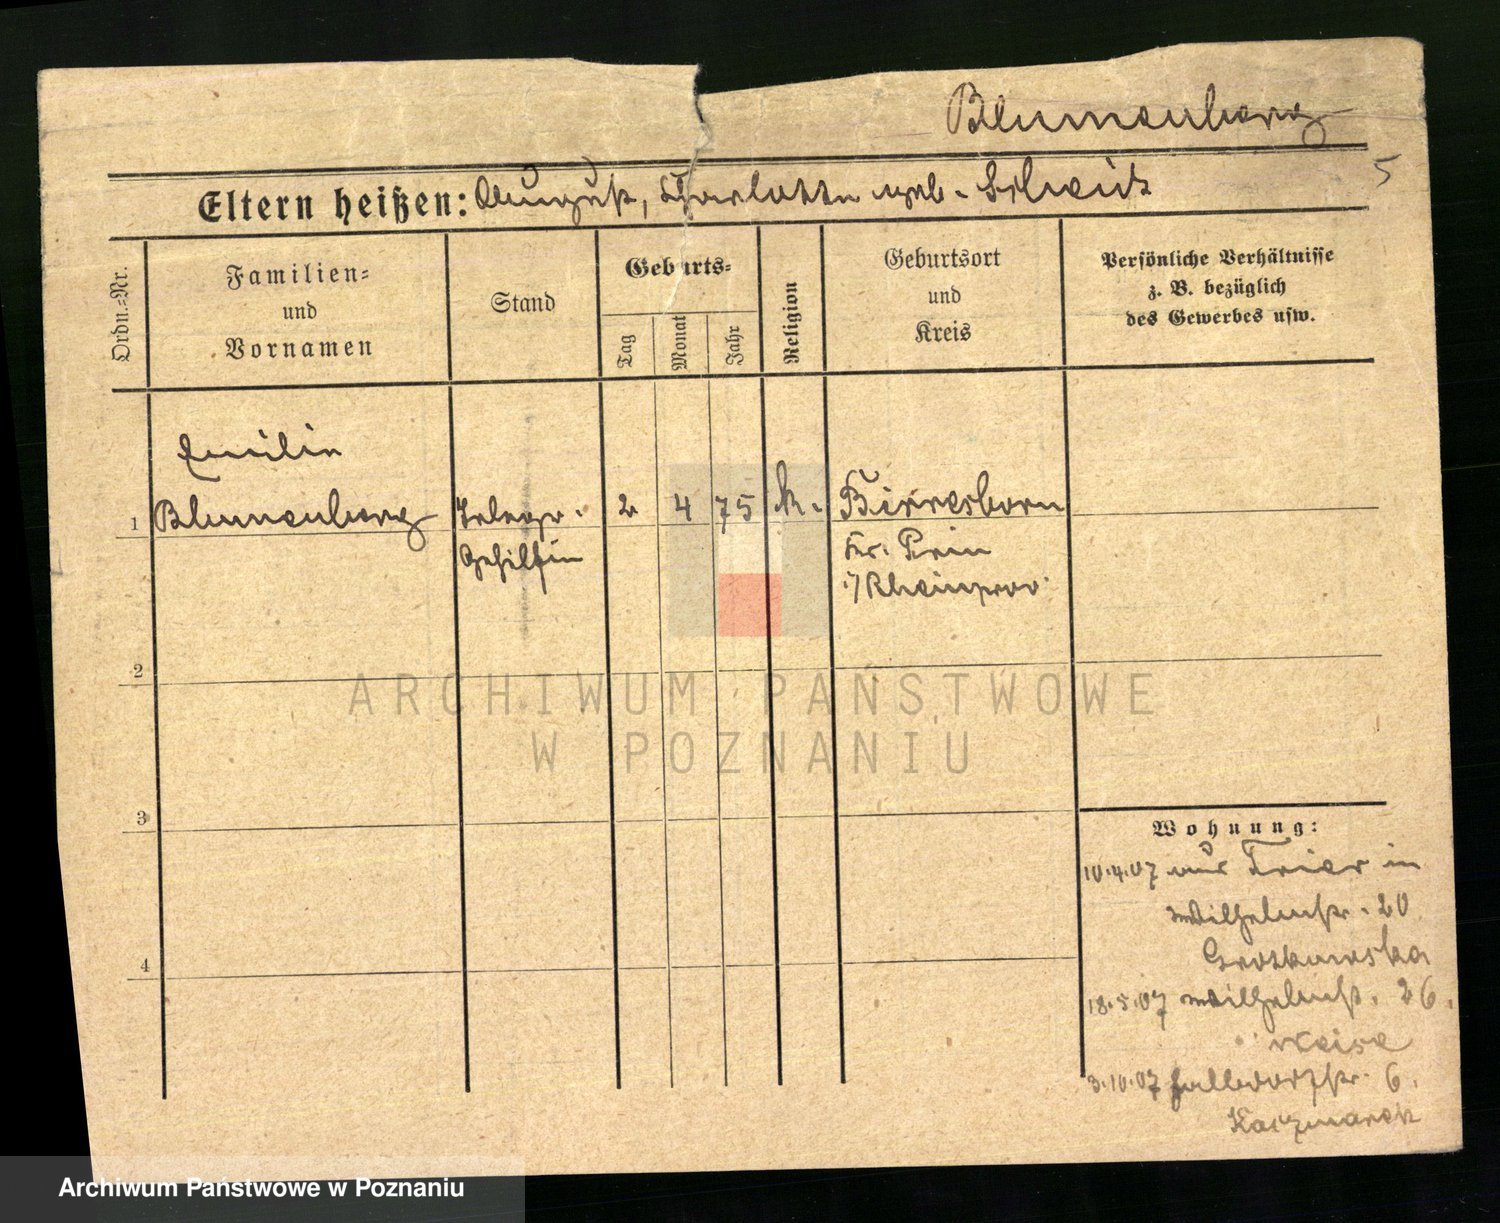 Blumenberg
5
Eltern heißen: August, Charlotte geb. Scheid
Ordn.-Nr.
Familien-
und
Vornamen
Stand
Geburts-
Tag
Monat
Jahr
Religion
Geburtsort
und
Kreis
Persönliche Verhältnisse
z. B. bezüglich
des Gewerbes usw.
Emilie
1 Blumenberg Telegr. 2 4 75 k. Birresborn
Gehilfin Kr. Prüm
i/Rheinprov.
2
ARCHIWUM PAŃSTWOWE
W POZNANIU
3
Wohnung:
10.4.07 aus Trier in
Wilhelmstr. 20
18.5.07 Wilhelmstr. 26.
Weise
4
3.10.07 Halbdorfstr. 6.
Kaczmarek
Archiwum Państwowe w Poznaniu